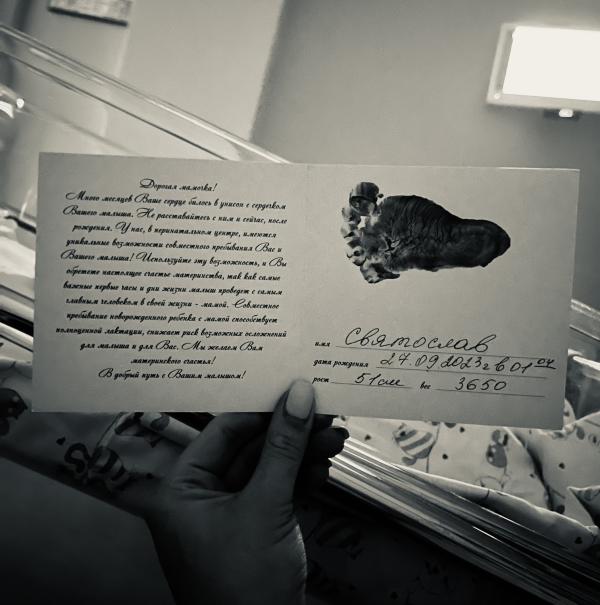 Дорогая мамочка!
Много месяцев Ваше сердце билось в унисон с сердечком
Вашего малыша. Не расставайтесь с ним и сейчас, после
рождения. У нас, в перинатальном центре, имеются
уникальные возможности совместного пребывания Вас и
Вашего малыша! Используйте эту возможность, и Вы
обретете настоящее счастье материнства, так как самые
важные первые часы и дни жизни малыш проведет с самым
главным человеком в своей жизни - мамой. Совместное
пребывание новорожденного ребенка с мамой способствует
полноценной лактации, снижает риск возможных осложнений
для малыша и для Вас. Мы желаем Вам
материнского счастья!
В добрый путь с Вашим малышом!
имя Святослав
дата рождения 27.09.2023г в 01 04
рост 51см вес 3650